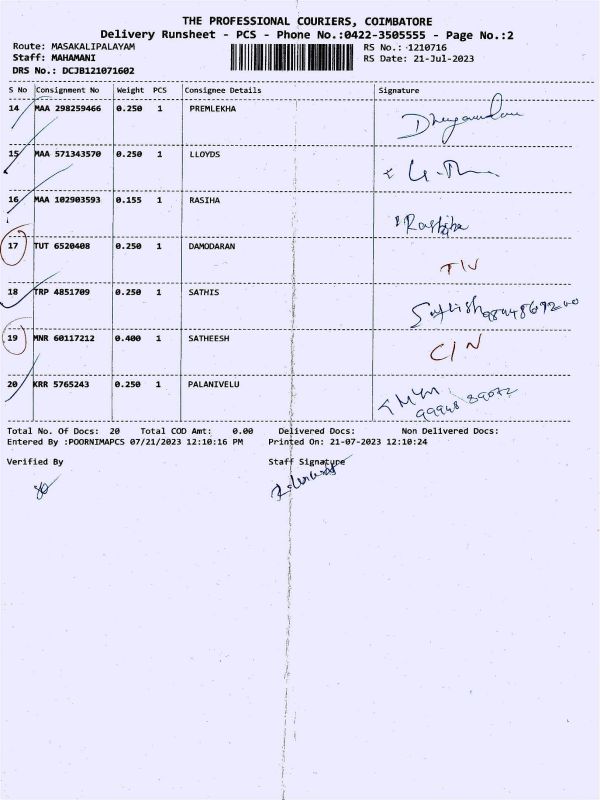 THE PROFESSIONAL COURIERS, COIMBATORE
Delivery Runsheet - PCS - Phone No.:0422-3505555 - Page No.:2
Route: MASAKALIPALAYAM RS No.: 1210716
Staff: MAHAMANI RS Date: 21-Jul-2023
DRS No.: DCJB121071602
S No Consignment No Weight PCS Consignee Details Signature
14 MAA 298259466 0.250 1 PREMLEKHA
15 MAA 571343570 0.250 1 LLOYDS
16 MAA 102903593 0.155 1 RASIHA
17 TUT 6520408 0.250 1 DAMODARAN
18 TRP 4851709 0.250 1 SATHIS
19 MNR 60117212 0.400 1 SATHEESH C/N
20 KRR 5765243 0.250 1 PALANIVELU
Total No. Of Docs: 20 Total COD Amt: 0.00 Delivered Docs: Non Delivered Docs:
Entered By :POORNIMAPCS 07/21/2023 12:10:16 PM Printed On: 21-07-2023 12:10:24
Verified By Staff Signature